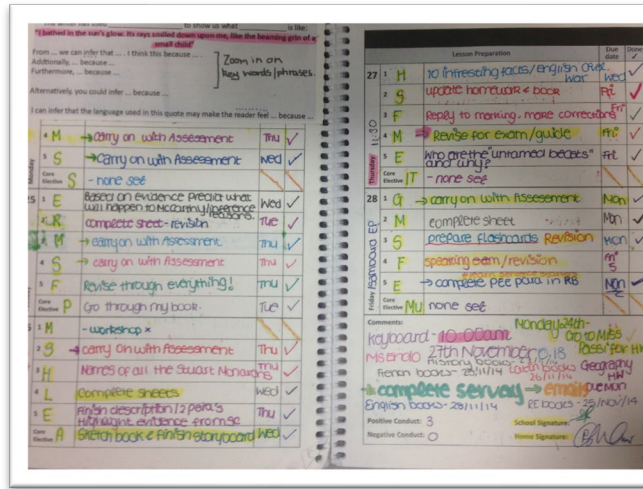 to show us what is like:
"I bathed in the sun's glow. Its rays smiled down upon me, like the beaming grin of a
small child"
From ... we can infer that ... . I think this because ...
Additionally, ... because ...
Furthermore, ... because ...
Zoom in on
key words/phrases.
Alternatively, you could infer ... because ...
I can infer that the language used in this quote may make the reader feel ... because ...
Monday
4 M → carry on with Assessment Thu ✓
5 S → carry on with Assessment Wed ✓
Core Elective S - none set
25 1 E Based on evidence predict what
will happen to McCarthy/inference
reasons. Wed ✓
2 R complete sheet - revision Tue ✓
3 M → carry on with Assessment Thu ✓
4 S → carry on with Assessment Thu ✓
5 F Revise through everything! Thu ✓
Core Elective P Go through my book. Tue ✓
1 M - workshop x
2 G → carry on with Assessment Thu ✓
3 H Names of all the Stuart Monarchs Thu ✓
4 L Complete sheets Wed ✓
5 E Finish description/2 para's
Highlight evidence from sc Thu ✓
Core Elective A Sketch book & finish storyboard Wed ✓
Lesson Preparation Due date Done ✓
27 1 H 10 interesting facts/English Civil
War Wed
2 S update homework & book Fri ✓
3 F Reply to marking, more corrections Fri ✓
11:30
Thursday
4 M → Revise for exam/guide Fri ✓
5 E Who are the "untamed beasts"
and why? Fri ✓
Core Elective IT - none set
28 1 G → carry on with Assessment Mon ✓
2 M complete sheet Mon ✓
3 S prepare flashcards Revision Mon ✓
4 F speaking exam/revision
Friday
5 E → complete PEE para in RB Mon
Core Elective Mu none set
Comments:
Keyboard - 10:00am
Monday 24th -
Go to Miss
Pass for
27th November
History books -
French books - 28/11/14
26/11/14
Geography
HW
→ complete servay → email
due Mon
English books - 28/11/14
RE books - 25/Nov/14
Positive Conduct: 3
School Signature:
Negative Conduct: 0
Home Signature: